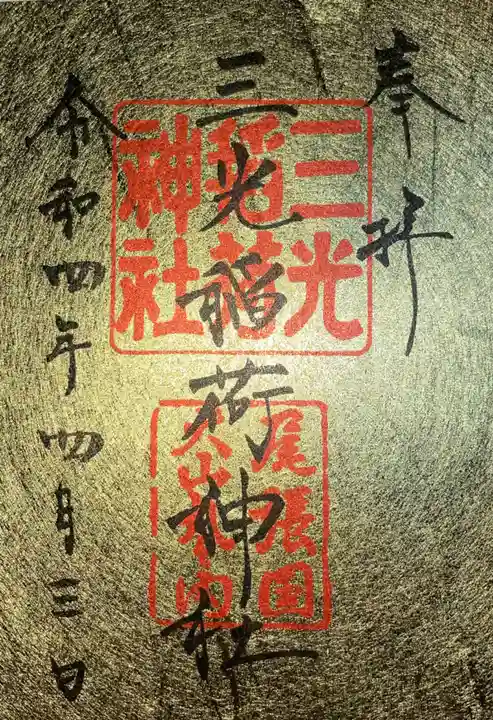 奉拝
三光稲荷神社
令和四年四月三日
三光
稲荷
神社
尾張国
犬山城内